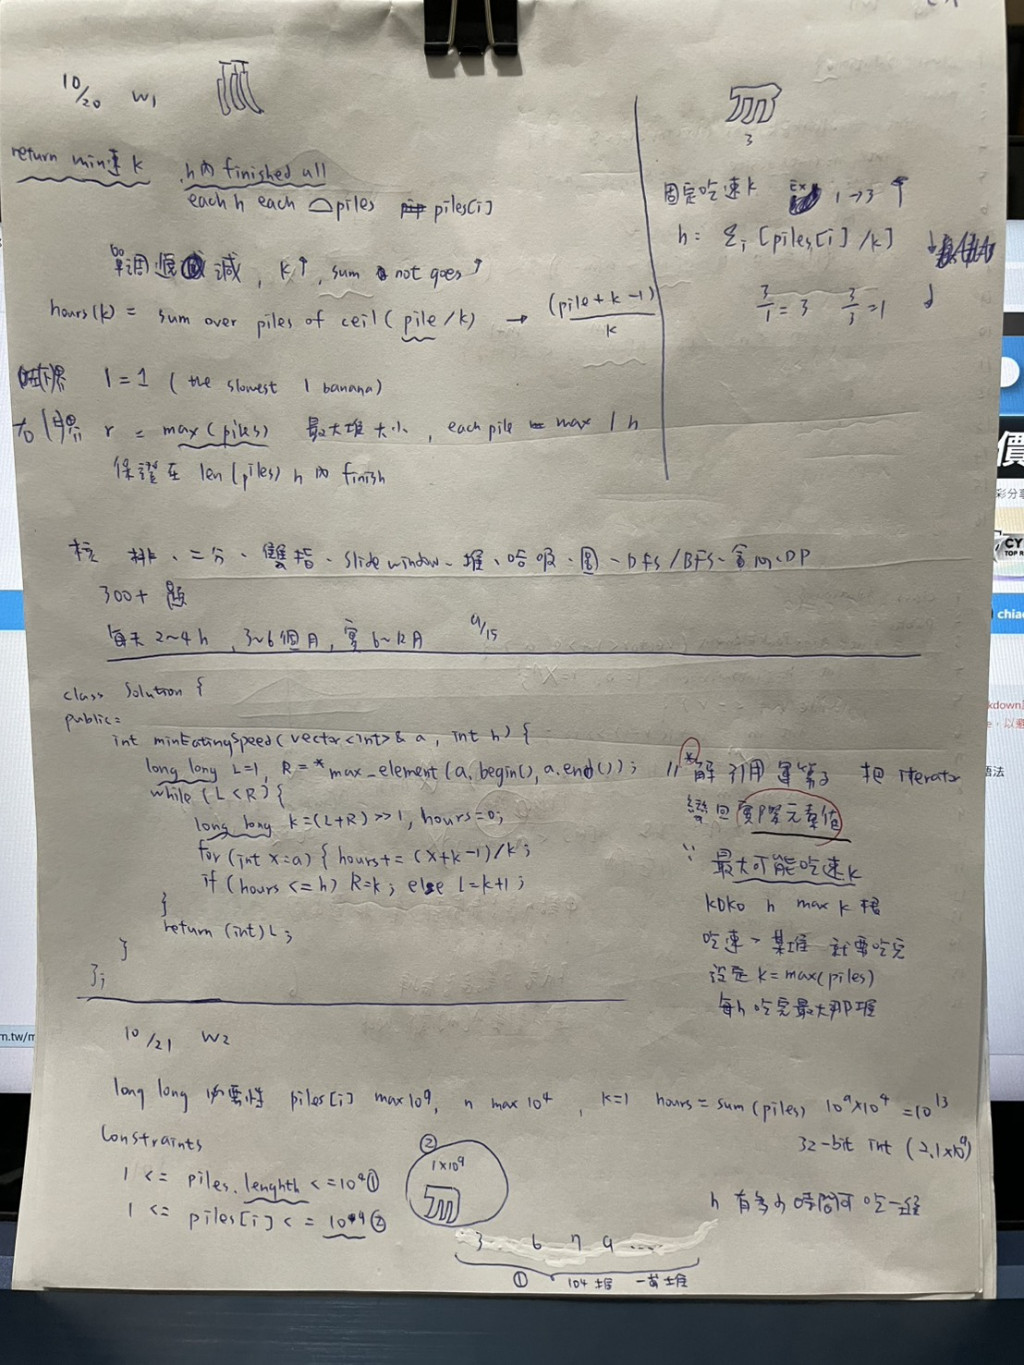 10/20 W1
return min速 k
h內 finished all
each h each piles piles[i]
單調遞減, k↑, sum not goes↑
hours(k) = sum over piles of ceil(pile/k) → (pile+k-1)/k
l = 1 (the slowest 1 banana)
右界 r = max(piles) 最大堆大小, each pile max 1 h
保證在 len(piles) h 內 finish
3
固定吃速k Ex 1→3 ↑
h: Σi [piles[i]/k] ↓
3/1 = 3 3/3 = 1 ↓
核 排、二分、雙指、slide window、堆、哈吸、圖、DFS/BFS、貪心、DP
300+ 題
每天 2~4 h, 3~6個月, 實6~12月 9/15
class Solution {
public:
int minEatingSpeed(vector<int>& a, int h) {
long long L=1, R=*max_element(a.begin(), a.end()); // *解引用運算子 把 iterator
變回實際元素值
while (L<R) {
long long k=(L+R)>>1, hours=0;
for (int x=a) { hours+=(x+k-1)/k;
if (hours<=h) R=k; else L=k+1;
}
return (int)L;
}
};
∵ 最大可能吃速k
KOKO h max k 根
吃速>某堆 就要吃完
設定 k=max(piles)
每h吃完最大那堆
10/21 W2
long long 必要性 piles[i] max 10^9, n max 10^4, k=1 hours = sum(piles) 10^9×10^4 = 10^13
32-bit int (2.1×10^9)
Constraints
1 <= piles.lenghth <= 10^4 ①
1 <= piles[i] <= 10^9 ②
②
1×10^9
h 有多少時間可吃一堆
3 6 7 9 ...
① 104堆 一萬堆
CY
TOP R
chiao
kdown
語法
m.tw/m